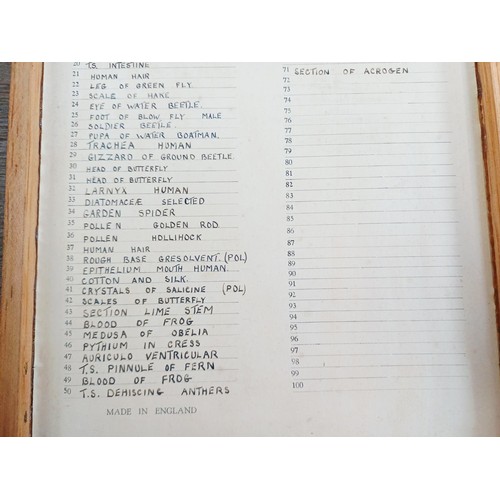 20 T.S. INTESTINE
21 HUMAN HAIR
22 LEG OF GREEN FLY.
23 SCALE OF HAKE
24 EYE OF WATER BEETLE.
25 FOOT OF BLOW FLY MALE
26 SOLDIER BEETLE.
27 PUPA OF WATER BOATMAN.
28 TRACHEA HUMAN
29 GIZZARD OF GROUND BEETLE.
30 HEAD OF BUTTERFLY
31 HEAD OF BUTTERFLY
32 LARNYX HUMAN
33 DIATOMACEÆ SELECTED
34 GARDEN SPIDER
35 POLLEN GOLDEN ROD
36 POLLEN HOLLIHOCK
37 HUMAN HAIR
38 ROUGH BASE GRESOLVENT. (POL)
39 EPITHELIUM MOUTH HUMAN.
40 COTTON AND SILK.
41 CRYSTALS OF SALICINE (POL)
42 SCALES OF BUTTERFLY
43 SECTION LIME STEM
44 BLOOD OF FROG
45 MEDUSA OF OBELIA
46 PYTHIUM IN CRESS
47 AURICULO VENTRICULAR
48 T.S. PINNULE OF FERN
49 BLOOD OF FROG
50 T.S. DEHISCING ANTHERS
MADE IN ENGLAND
71 SECTION OF ACROGEN
72
73
74
75
76
77
78
79
80
81
82
83
84
85
86
87
88
89
90
91
92
93
94
95
96
97
98
99
100